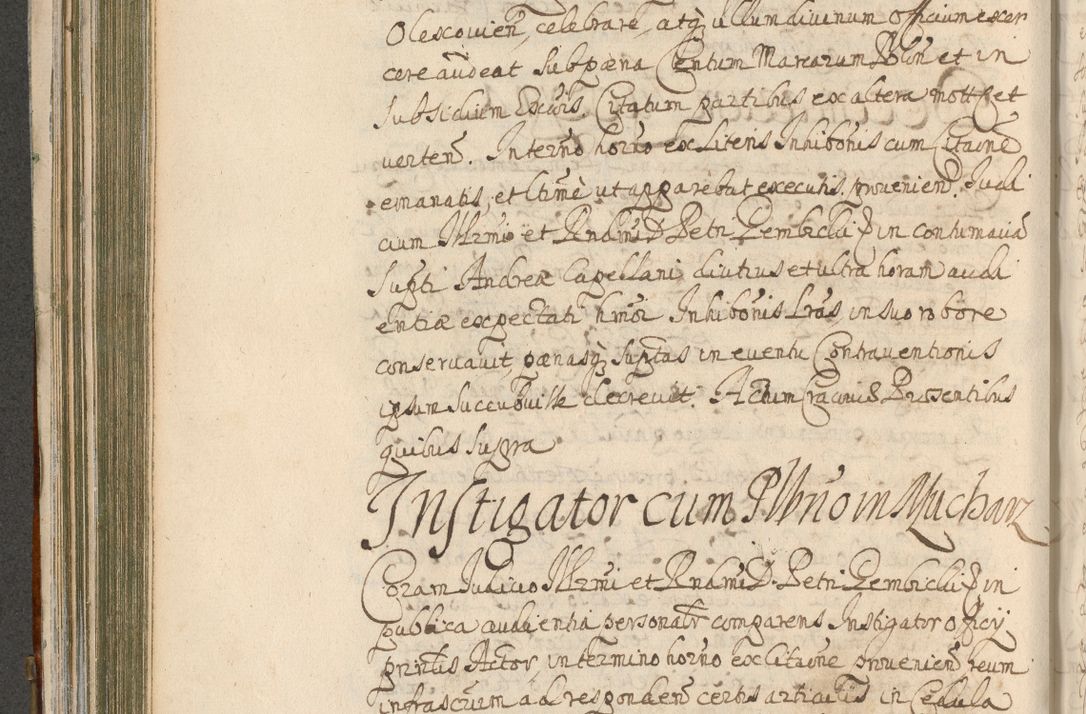 Olescovien, celebrare, atq; ullum divinum officium exer
cere audeat sub pœna Centum Marcarum et in
subsidium Excõis. Citatum partibus ex altera
verten. In termo horno ex litteris Inhibõnis cum Citaõne
emanatis, et ltimè ut apparebat executis, provenien. Judi
cium Illrmi et Rndmi D. Petri Gembicki in contumaciã
supti Andreæ Capellani diutius et ultra horam audi
entiæ expectati hmõi Inhibõnis Lrãs in suo robore
conservavit, pœnasq; suptas in eventu Contraventionis
ipsum succubuisse decrevit. Actum Cracoviæ Præsentibus
quibus supra
Instigator cum Plbno in Mucharz
Coram Judicio Illrmi et Rndmi D. Petri Gembicki in
publica audientia personalr comparens Instigator Officij
pñtis Actor, in termino horno ex Citaõne provenien reum
infrascrum ad responden certis articulis in Cedula